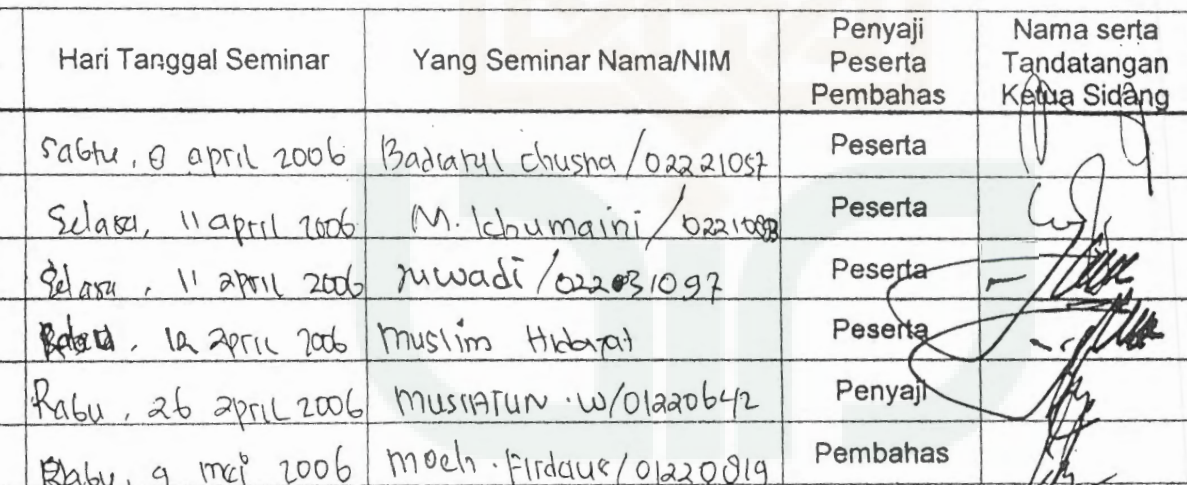 Hari Tanggal Seminar
Yang Seminar Nama/NIM
Penyaji
Peserta
Pembahas
Nama serta
Tandatangan
Ketua Sidang
Sabtu, 8 april 2006 Badiatul chusna / 02221057 Peserta
Selasa, 11 april 2006 M. Khumaini / Peserta
Selasa, 11 april 2006 / Peserta
Rabu, 12 april 2006 Muslim Hidayat Peserta
Rabu, 26 april 2006 MUSIATUN .W/01220642 Penyaji
Rabu, 9 mei 2006 Moch. Firdaus/01220819 Pembahas